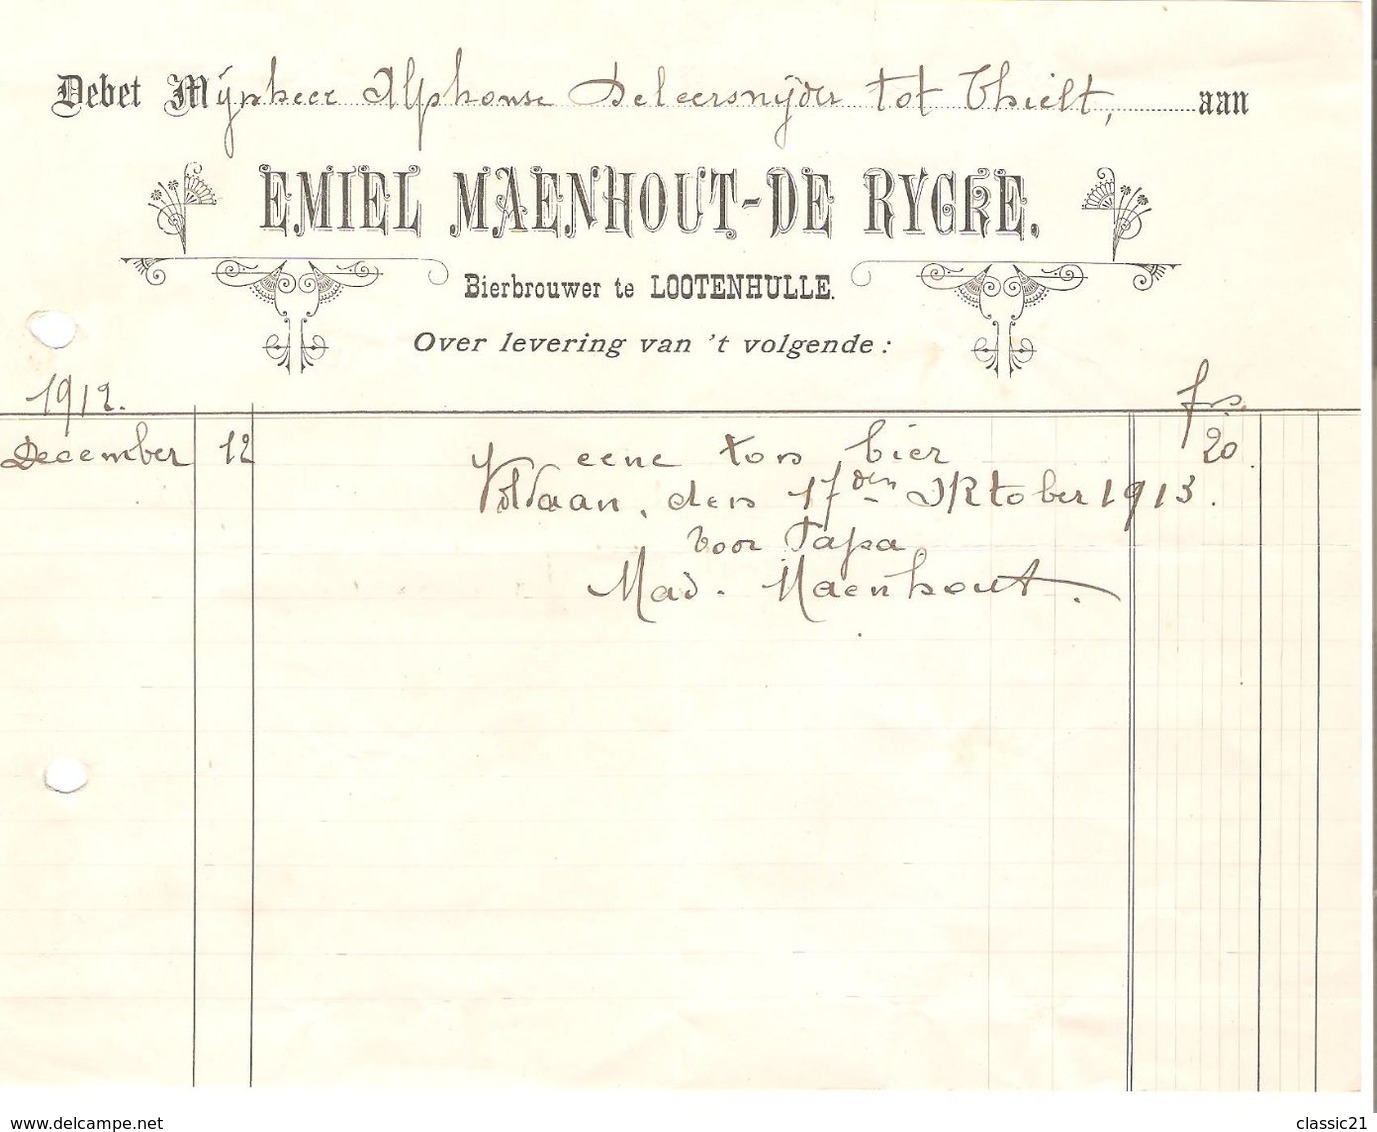 Debet Mynheer Alphonse Deleersnÿder tot Thielt, aan
EMIEL MAENHOUT-DE RYCKE.
Bierbrouwer te LOOTENHULLE.
Over levering van 't volgende:
1912. frs.
December 12 eene ton bier 20
Voldaan, den 17den Oktober 1913.
voor Papa
Mad. Maenhout.
www.delcampe.net classic21